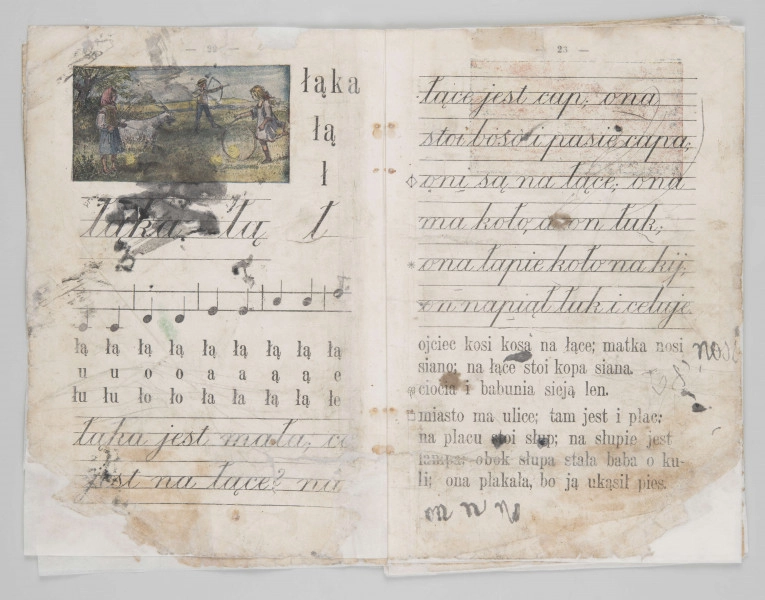 łąka
łą
ł
łąka, łą ł
łą łą łą łą łą łą łą łą łą
u u o o a a ą ą e
łu łu ło ło ła ła łą łą łe
łąka jest mała; co
jest na łące? na
— 23 —
łące jest cap; ona
stoi boso i pasie capa;
oni są na łące; ona
ma koło, a on łuk;
ona łapie koło na kij,
on napiął łuk i celuje.
ojciec kosi kosą na łące; matka nosi
siano; na łące stoi kopa siana.
ciocia i babunia sieją len.
miasto ma ulice; tam jest i plac;
na placu stoi słup; na słupie jest
lampa; obok słupa stała baba o ku-
li; ona płakała, bo ją ukąsił pies.